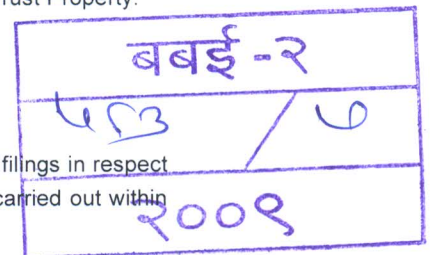 rust Property.
बबई -२
/ ७
filings in respect
carried out within
२००९